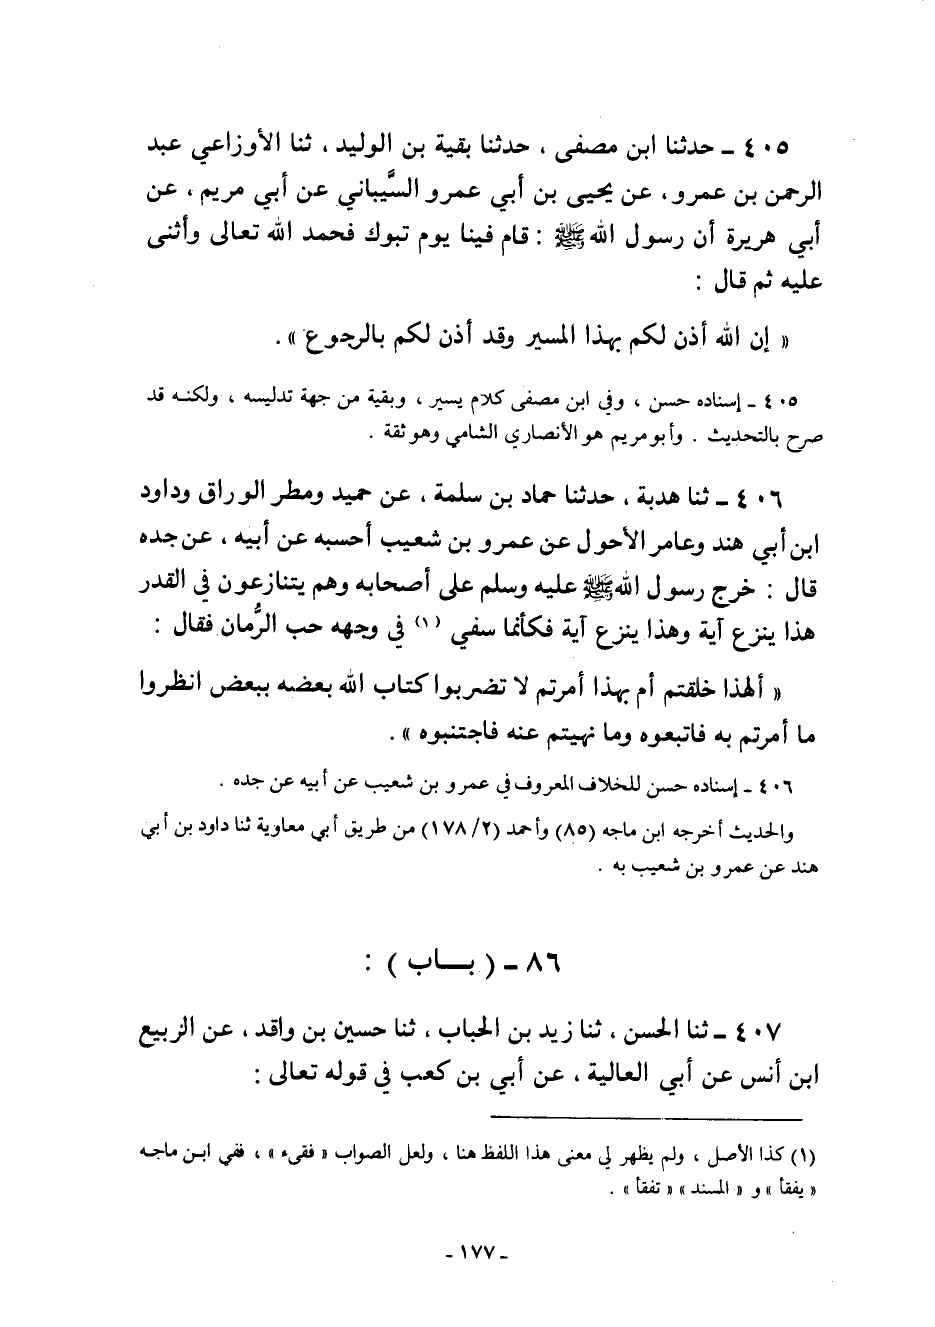 ٤٠٥ ـ حدثنا ابن مصفى ، حدثنا بقية بن الوليد ، ثنا الأوزاعي عبد
الرحمن بن عمرو، عن يحيى بن أبي عمرو السَّيباني عن أبي مريم ، عن
أبي هريرة أن رسول الله ﷺ : قام فينا يوم تبوك فحمد الله تعالى وأثنى
عليه ثم قال :
« إن الله أذن لكم بهذا المسير وقد أذن لكم بالرجوع » .
٤٠٥ ـ إسناده حسن ، وفي ابن مصفى كلام يسير ، وبقية من جهة تدليسه ، ولكنه قد
صرح بالتحديث . وأبو مريم هو الأنصاري الشامي وهو ثقة .
٤٠٦ ـ ثنا هدبة ، حدثنا حماد بن سلمة ، عن حميد ومطر الوراق وداود
ابن أبي هند وعامر الأحول عن عمرو بن شعيب أحسبه عن أبيه ، عن جده
قال : خرج رسول الله ﷺ عليه وسلم على أصحابه وهم يتنازعون في القدر
هذا ينزع آية وهذا ينزع آية فكأنما سفي (١) في وجهه حب الرُّمان فقال :
« ألهذا خلقتم أم بهذا أمرتم لا تضربوا كتاب الله بعضه ببعض انظروا
ما أمرتم به فاتبعوه وما نهيتم عنه فاجتنبوه » .
٤٠٦ ـ إسناده حسن للخلاف المعروف في عمرو بن شعيب عن أبيه عن جده .
والحديث أخرجه ابن ماجه (٨٥) وأحمد (٢/ ١٧٨) من طريق أبي معاوية ثنا داود بن أبي
هند عن عمرو بن شعيب به .
٨٦ ـ ( بـــاب ) :
٤٠٧ ـ ثنا الحسن ، ثنا زيد بن الحباب ، ثنا حسين بن واقد ، عن الربيع
ابن أنس عن أبي العالية ، عن أبي بن كعب في قوله تعالى :
(١) كذا الأصل ، ولم يظهر لي معنى هذا اللفظ هنا ، ولعل الصواب « فقىء » ، ففي ابن ماجه
« يفقأ » و « المسند » « تفقأ » .
ـ ١٧٧ ـ